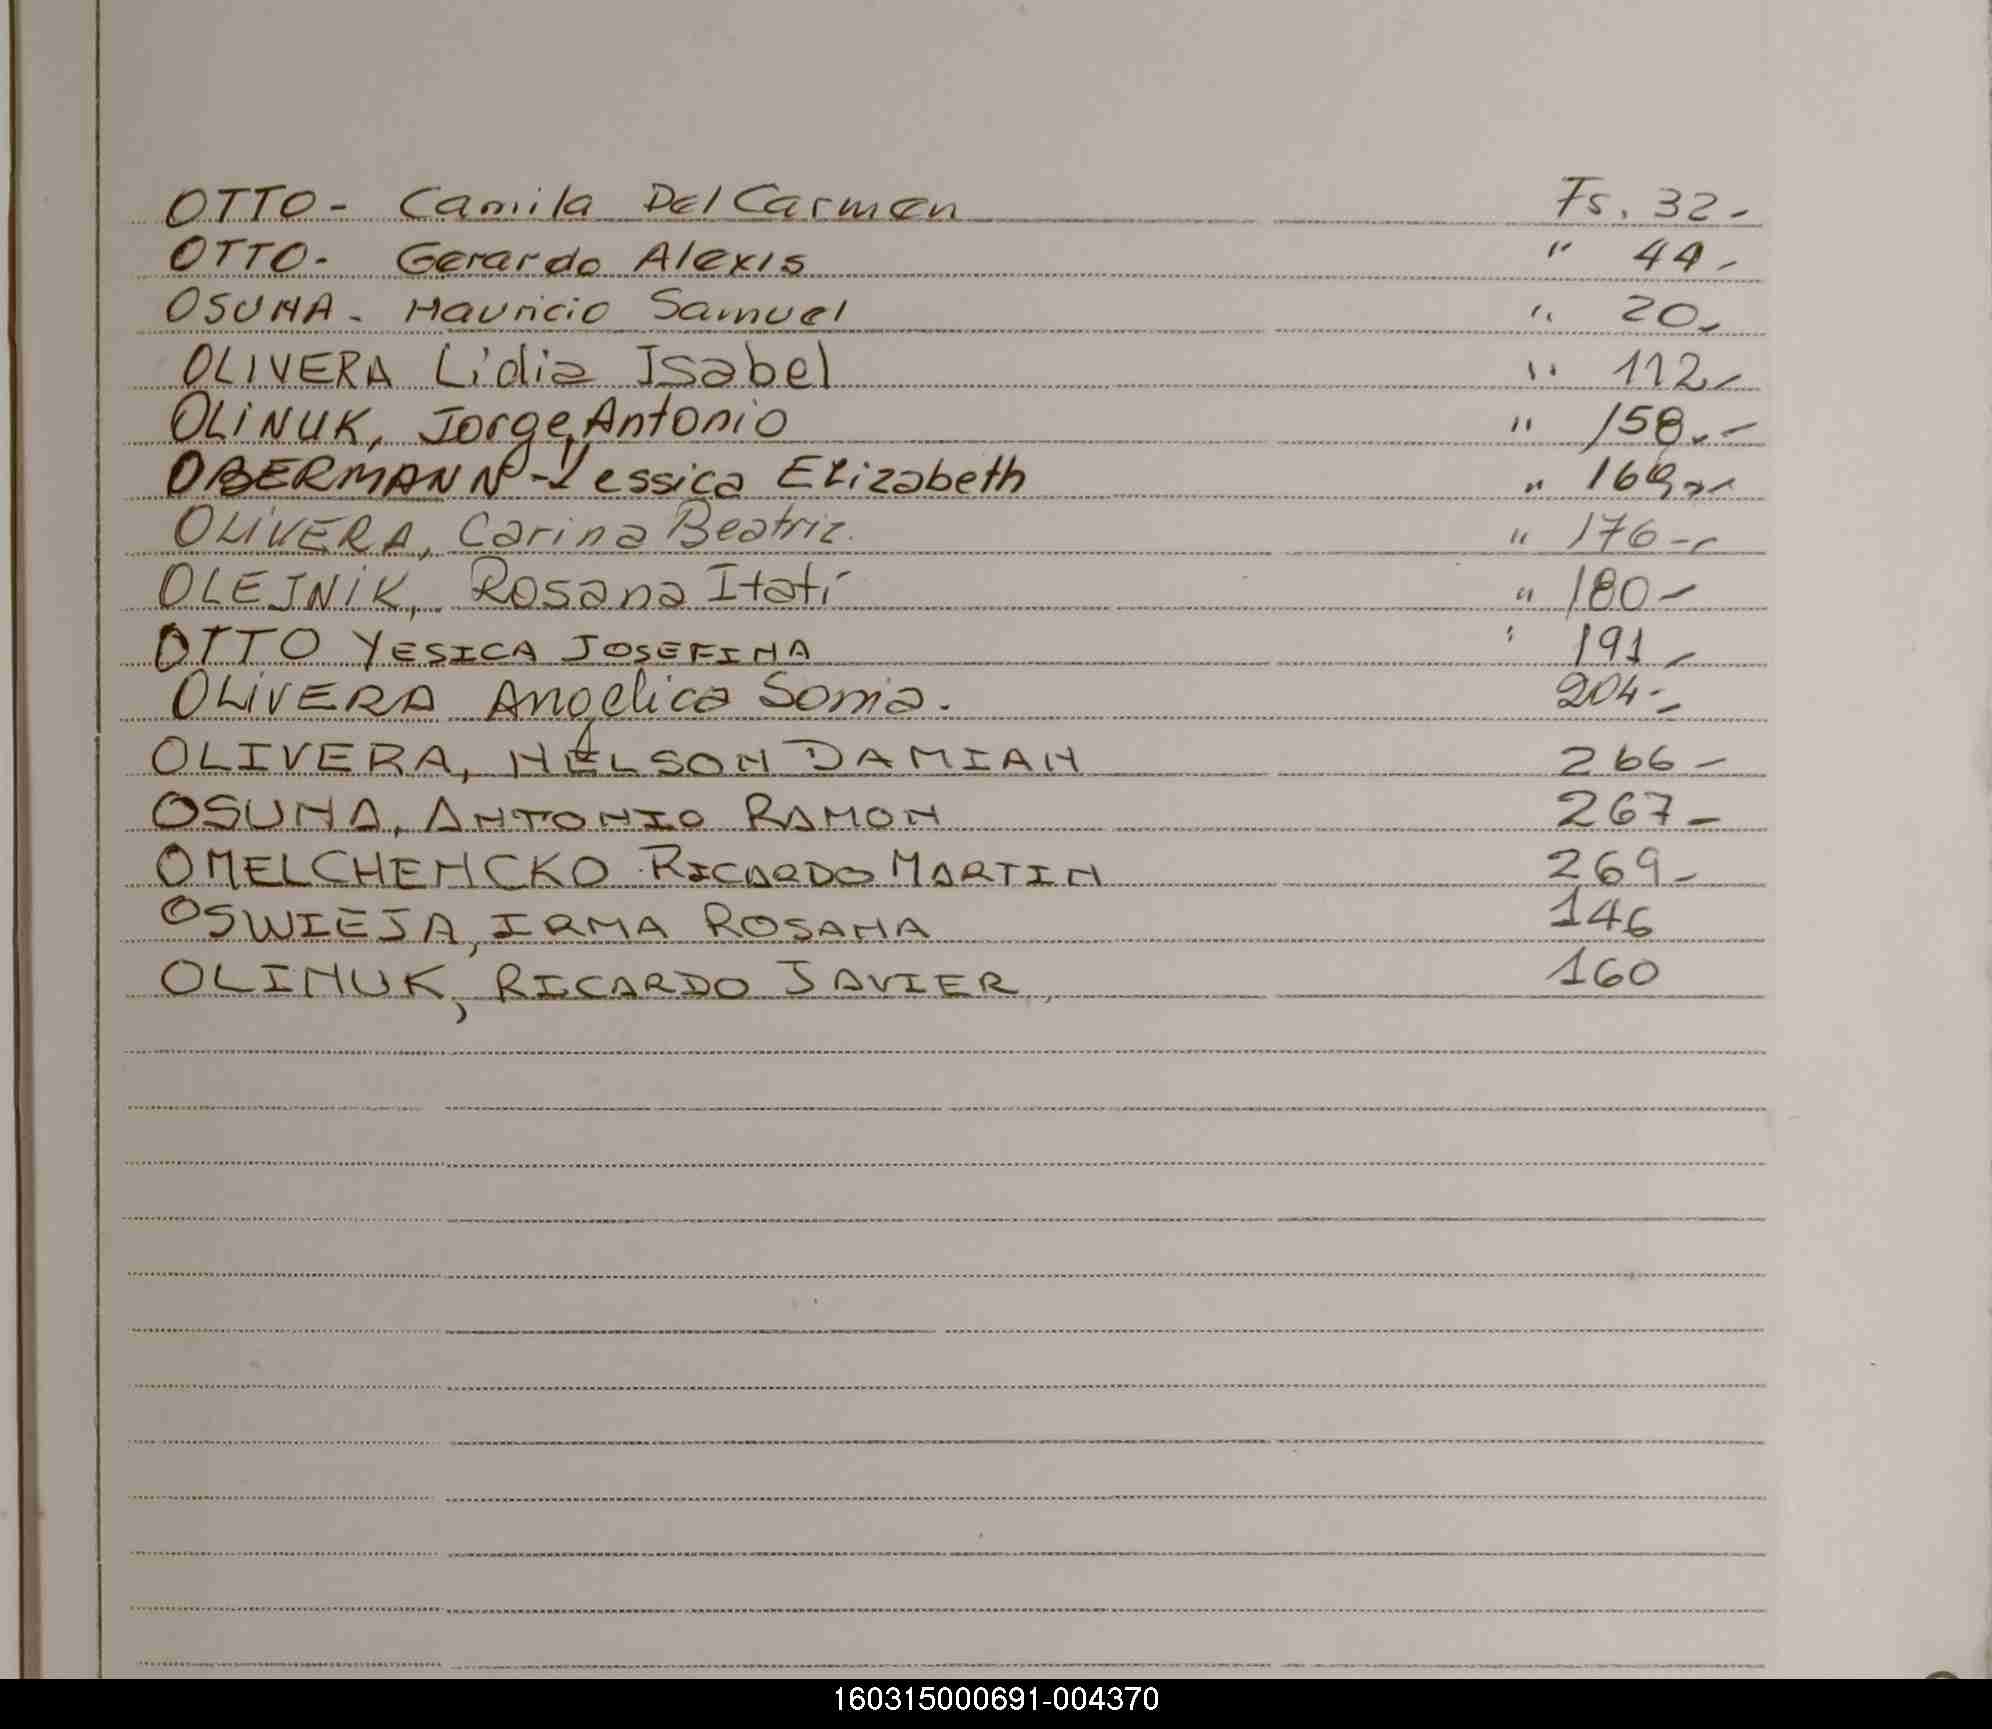 OTTO - Camila Del Carmen Fs. 32 -
OTTO - Gerardo Alexis " 44 -
OSUNA - Mauricio Samuel " 20 -
OLIVERA Lidia Isabel " 112 -
OLINUK, Jorge Antonio " 158 . -
OBERMANN - Yessica Elizabeth " 169 -
OLIVERA, Carina Beatriz. " 176 -
OLEJNIK, Rosana Itatí " 180 -
OTTO YESICA JOSEFINA " 191 -
OLIVERA Angelica Sonia. 204 -
OLIVERA, NELSON DAMIAN 266 -
OSUNA, ANTONIO RAMON 267 -
OMELCHENCKO RICARDO MARTIN 269 -
OSWIEJA, IRMA ROSANA 146
OLINUK, RICARDO JAVIER 160
160315000691-004370